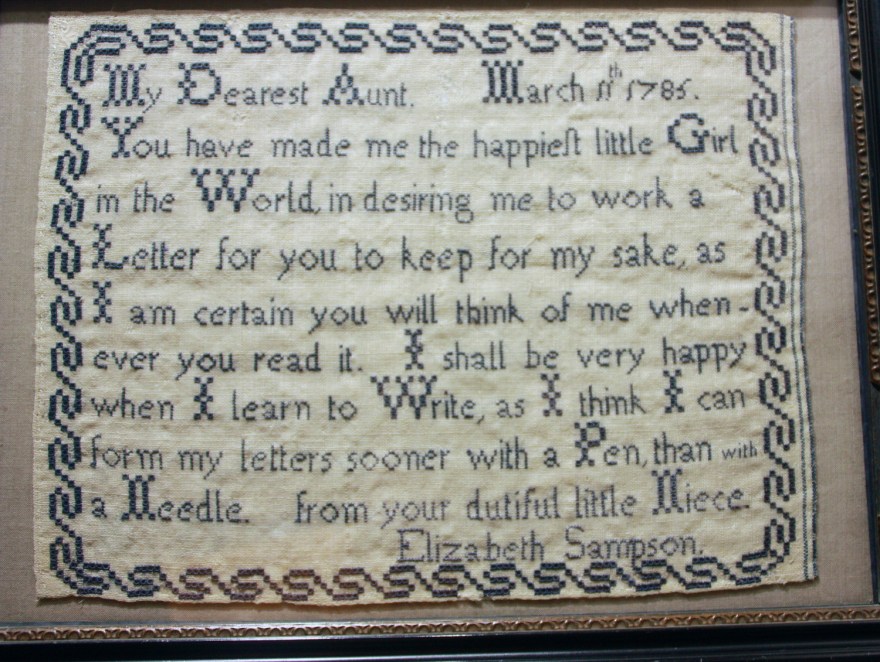 My Dearest Aunt. March 11th 1785.
You have made me the happieſt little Girl
in the World, in desiring me to work a
Letter for you to keep for my sake, as
I am certain you will think of me when-
ever you read it. I shall be very happy
when I learn to Write, as I think I can
form my letters sooner with a Pen, than with
a Needle. from your dutiful little Niece.
Elizabeth Sampson.